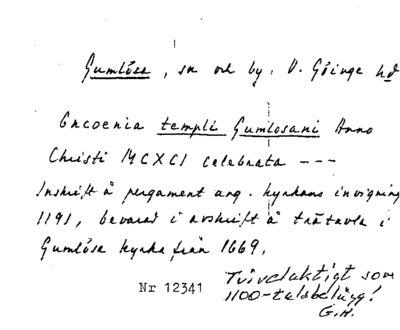 Gumlösa, sn och by. V. Göinge hd
Encoenia templi Gumlosani Anno
Christi MCXCI celebrata ---
Inskrift å pergament ang. kyrkans invigning
1191, bevarad i avskrift å trätavla i
Gumlösa kyrka från 1669.
Tvivelaktigt som
1100-talsbelägg!
G.H.
Nr 12341